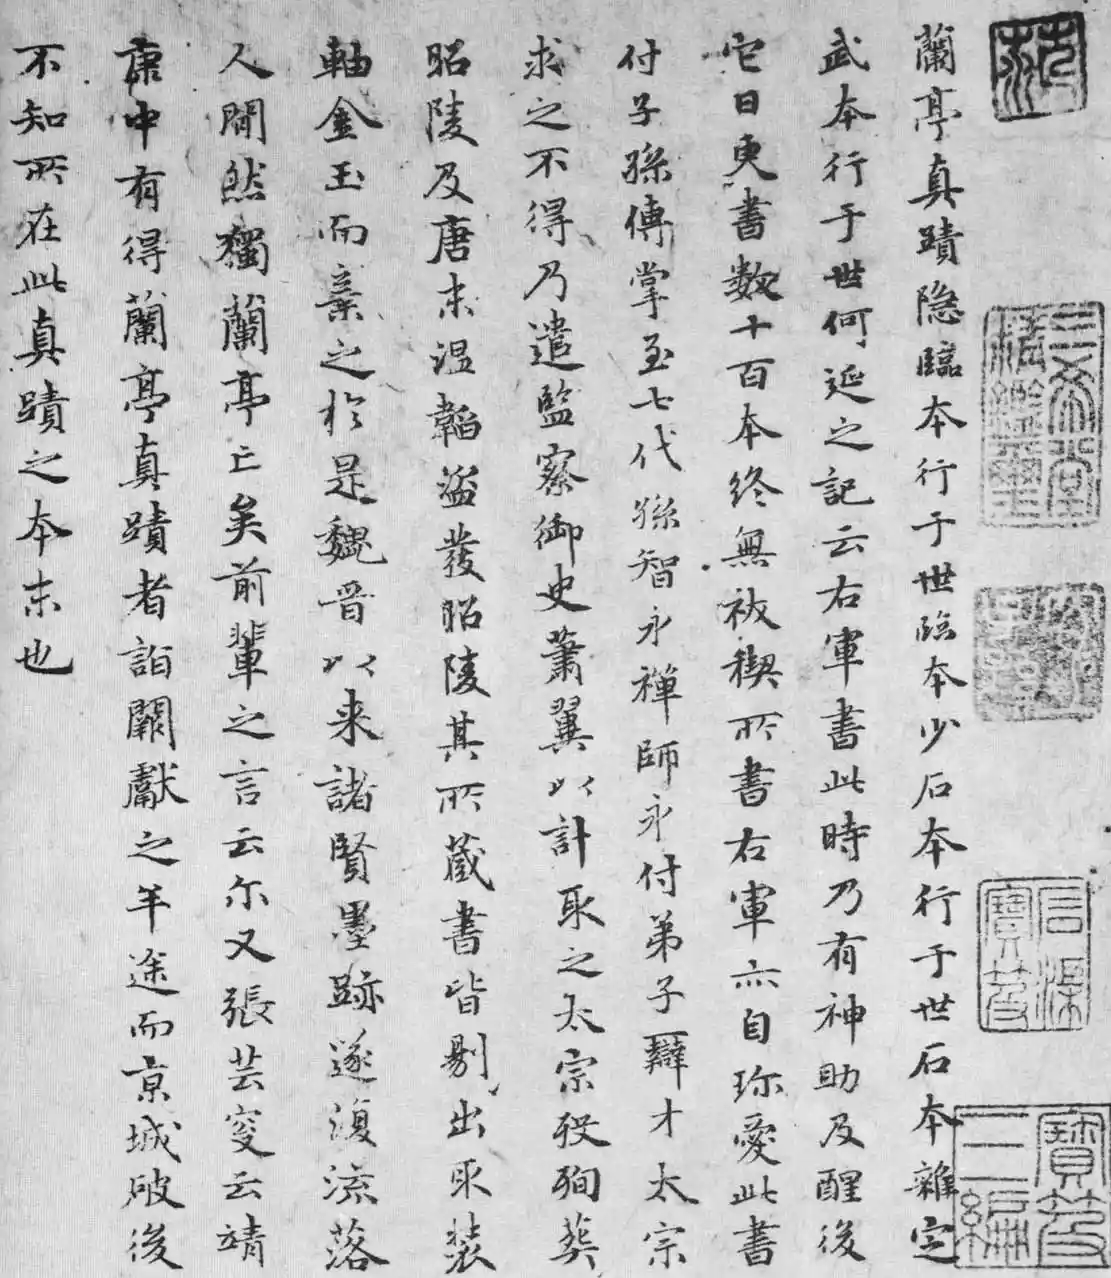 蘭亭真蹟隐臨本行于世臨本少石本行于世石本雜定
武本行于世何延之記云右軍書此時乃有神助及醒後
它日更書數十百本終無祓禊所書右軍亦自珎愛此書
付子孫傳掌至七代孫智永禪師永付弟子辯才太宗
求之不得乃遣監察御史蕭翼以計取之太宗殁殉葬
昭陵及唐末温韜盗發昭陵其所蔵書皆剔出取装
軸金玉而棄之於是魏晋以来諸賢墨跡遂復流落
人間然獨蘭亭亡矣前輩之言云尔又張芸叟云靖
康中有得蘭亭真蹟者詣闕獻之半途而京城破後
不知所在此真蹟之本末也
三希堂精鑑璽
石渠寶笈
寶笈三編